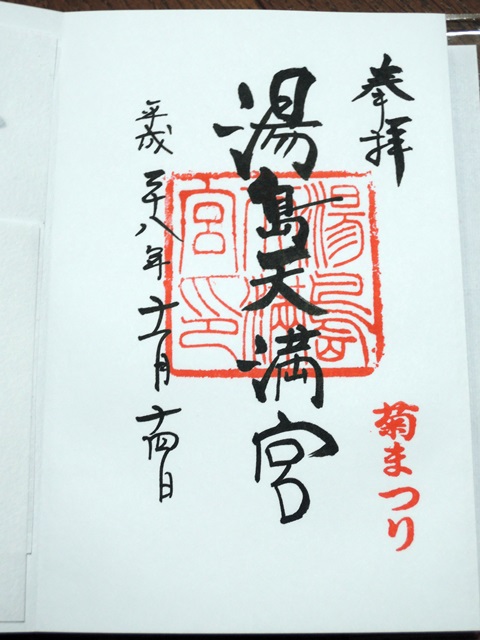 奉拝
菊まつり
湯島天満宮
湯島天満宮印
平成二十八年十一月十四日